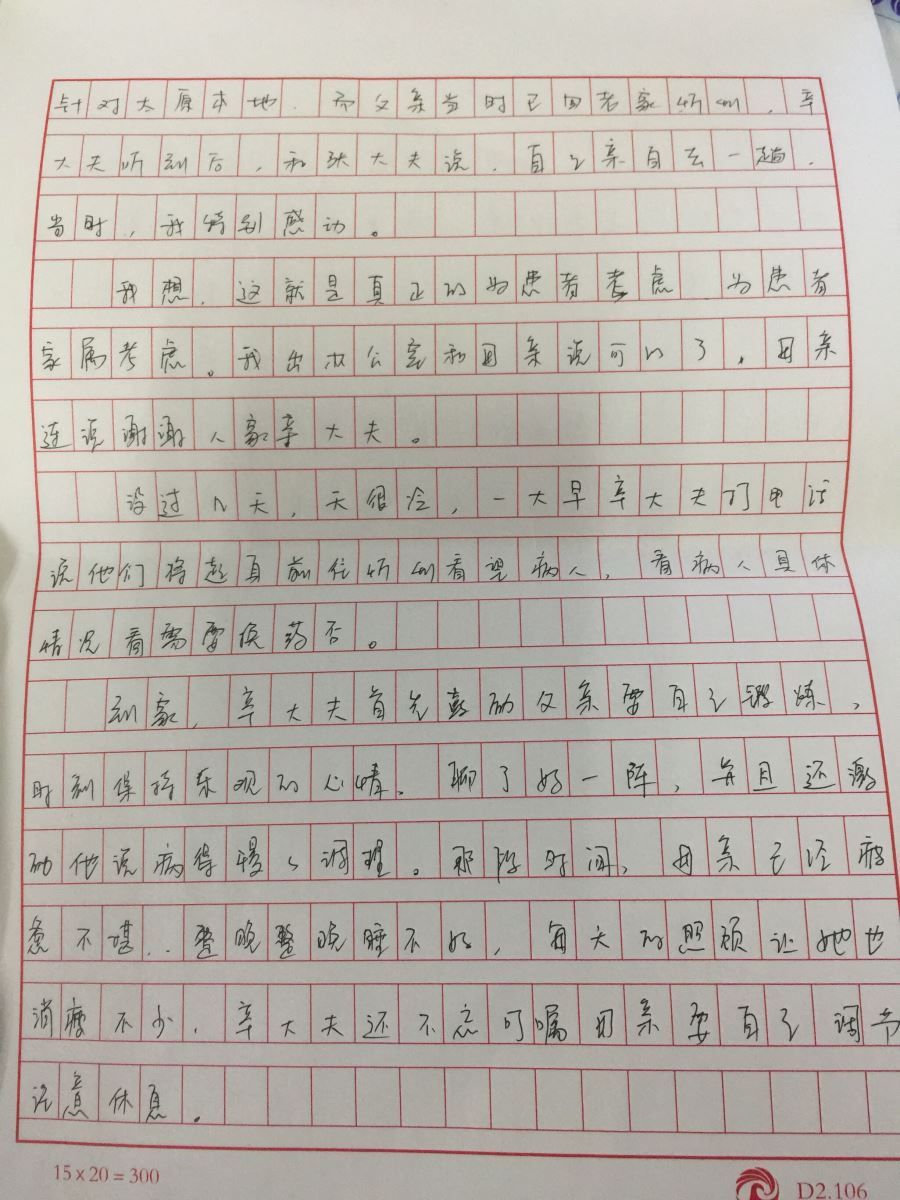 针对太原本地，而父亲当时已回老家忻州，辛
大夫听到后，和张大夫说，自己亲自去一趟，
当时，我特别感动。
我想，这就是真正的为患者考虑 为患者
家属考虑。我出办公室和母亲说可以了，母亲
连说谢谢人家辛大夫。
没过几天，天很冷，一大早辛大夫打电话
说他们将赶直前往忻州看望病人，看病人具体
情况看需要换药否。
到家，辛大夫首先鼓励父亲要自己锻炼，
时刻保持乐观的心情，聊了好一阵，并且还激
励他说病得慢々调理。那段时间，母亲已经疲
惫不堪，整晚整晚睡不好，每天的照顾让她也
消瘦不少，辛大夫还不忘叮嘱母亲要自己调节
注意休息。
15×20=300
D2.106